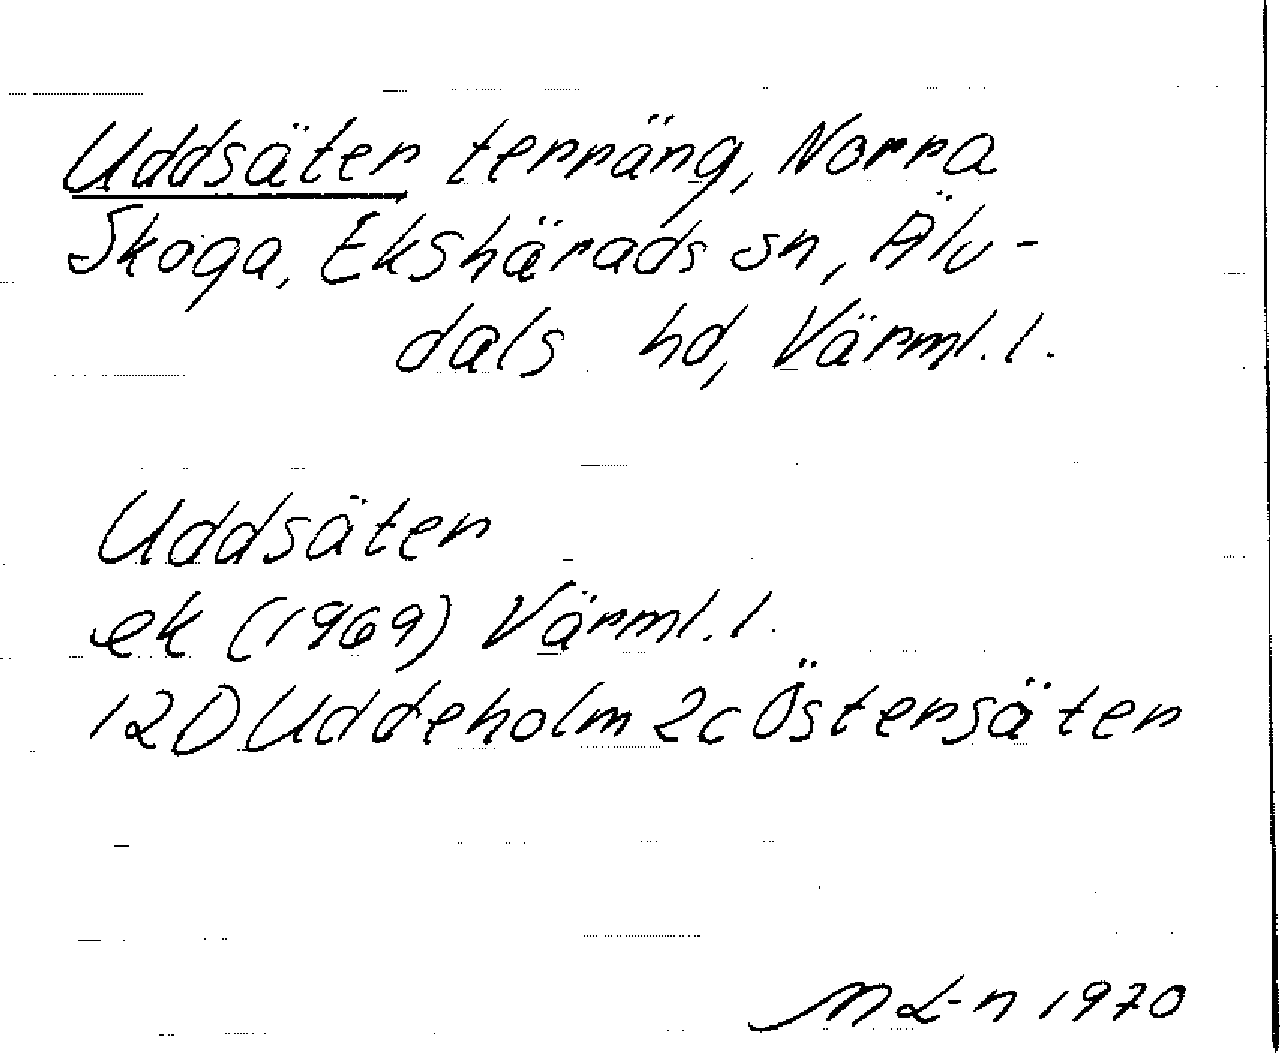 Uddsäter terräng, Norra
Skoga, Ekshärads sn, Älv-
dals hd, Värml. l.
Uddsäter
ek (1969) Värml. l.
12D Uddeholm 2c Östersäter
M L-n 1970